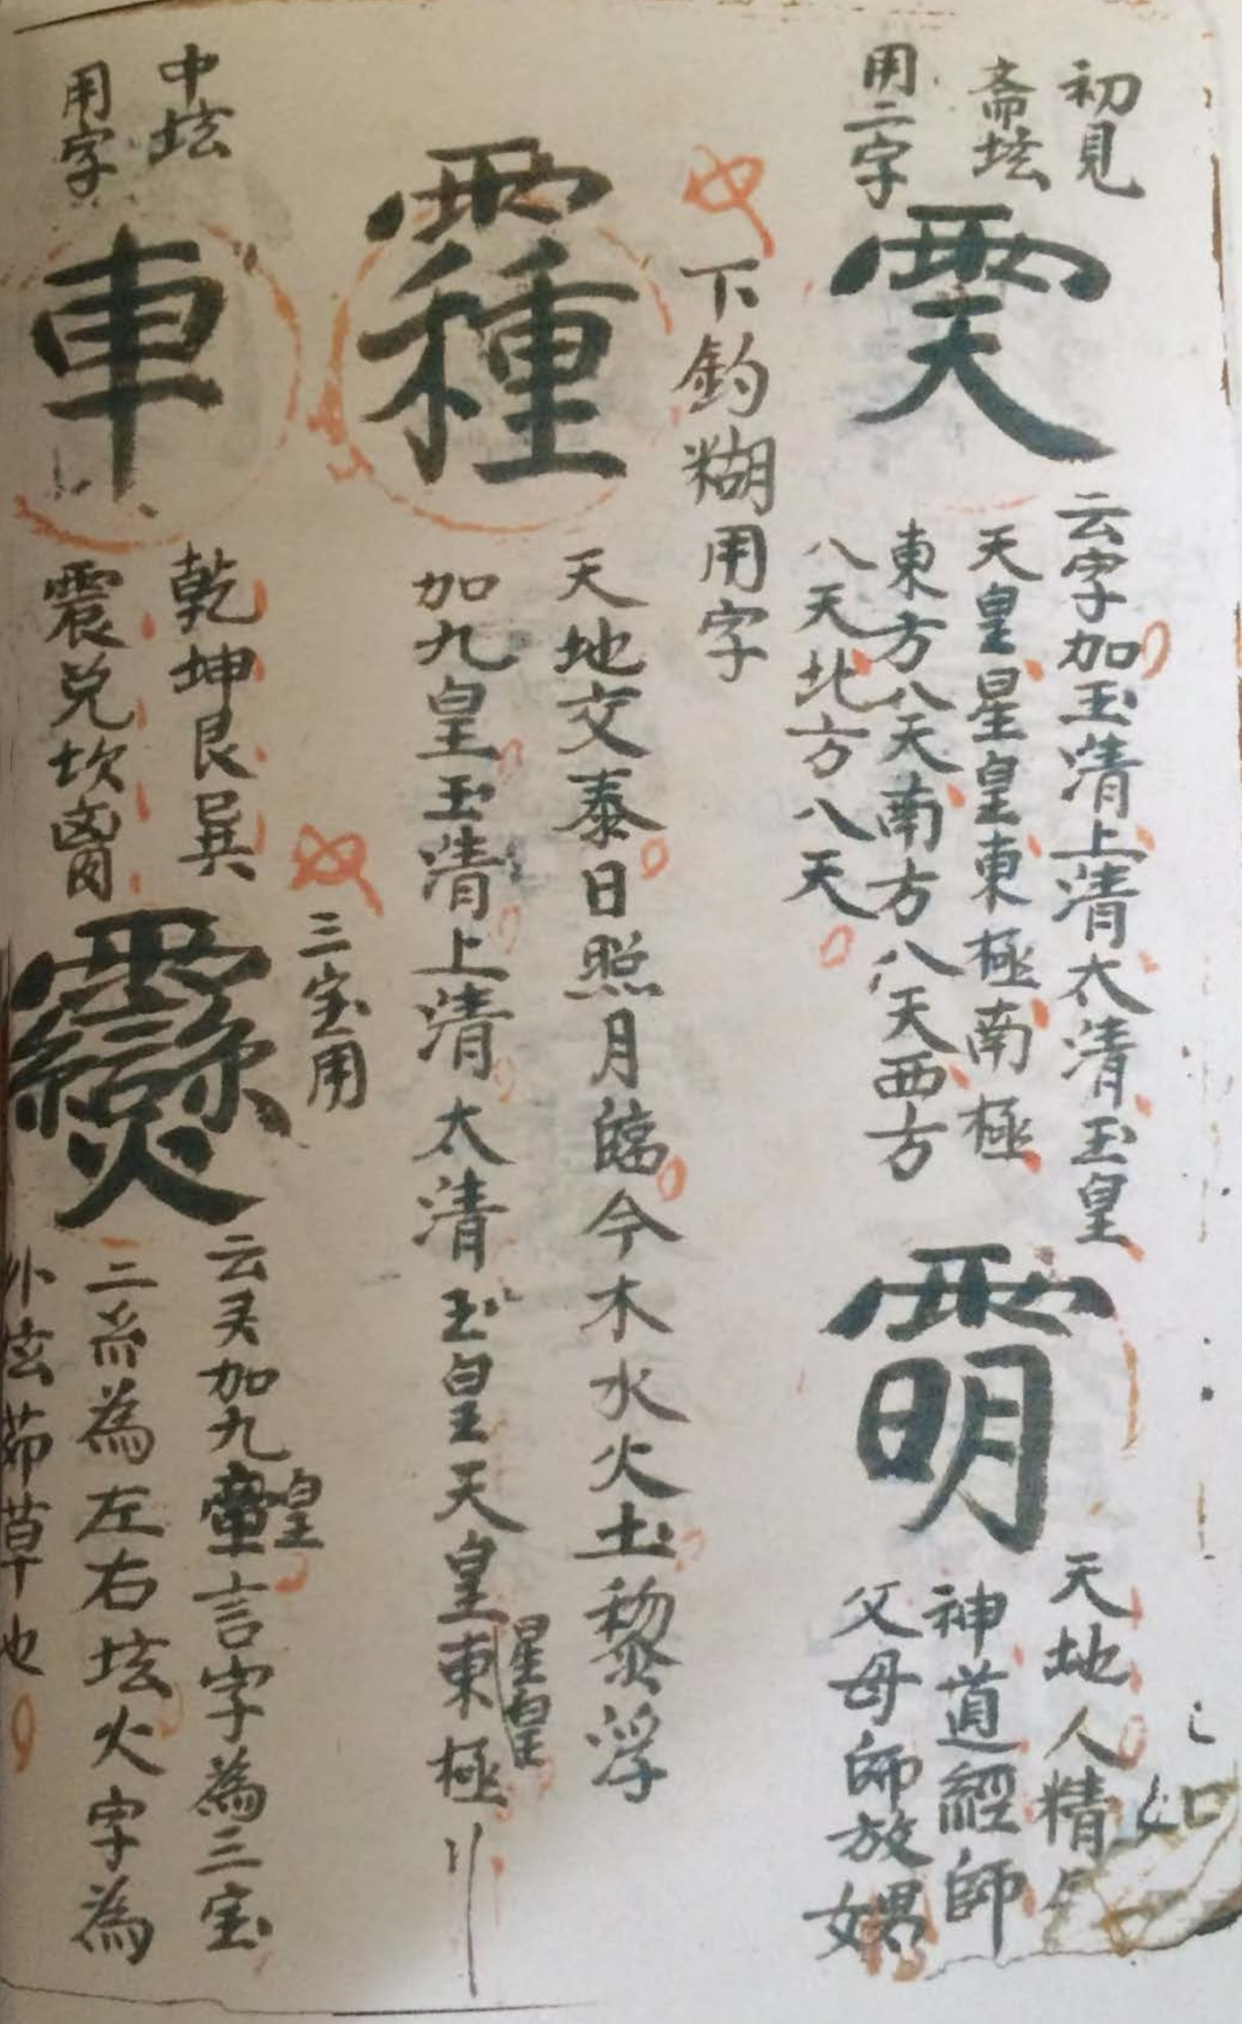 初見
斋坛
用二字
䨷
云字加玉清上清太清玉皇
天皇星皇東極南極
東方八天南方八天西方
八天北方八天
天地人精
神道經師
父母師放
如
下釣糊用字
天地交泰日照月臨今木水火土
加九皇玉清上清太清玉皇天皇東極
星皇
中坛
用字
車
乾坤艮巽
震兌坎
三宝用
云灵加九
皇
言字為三宝
三
為左右坛火字為
草也